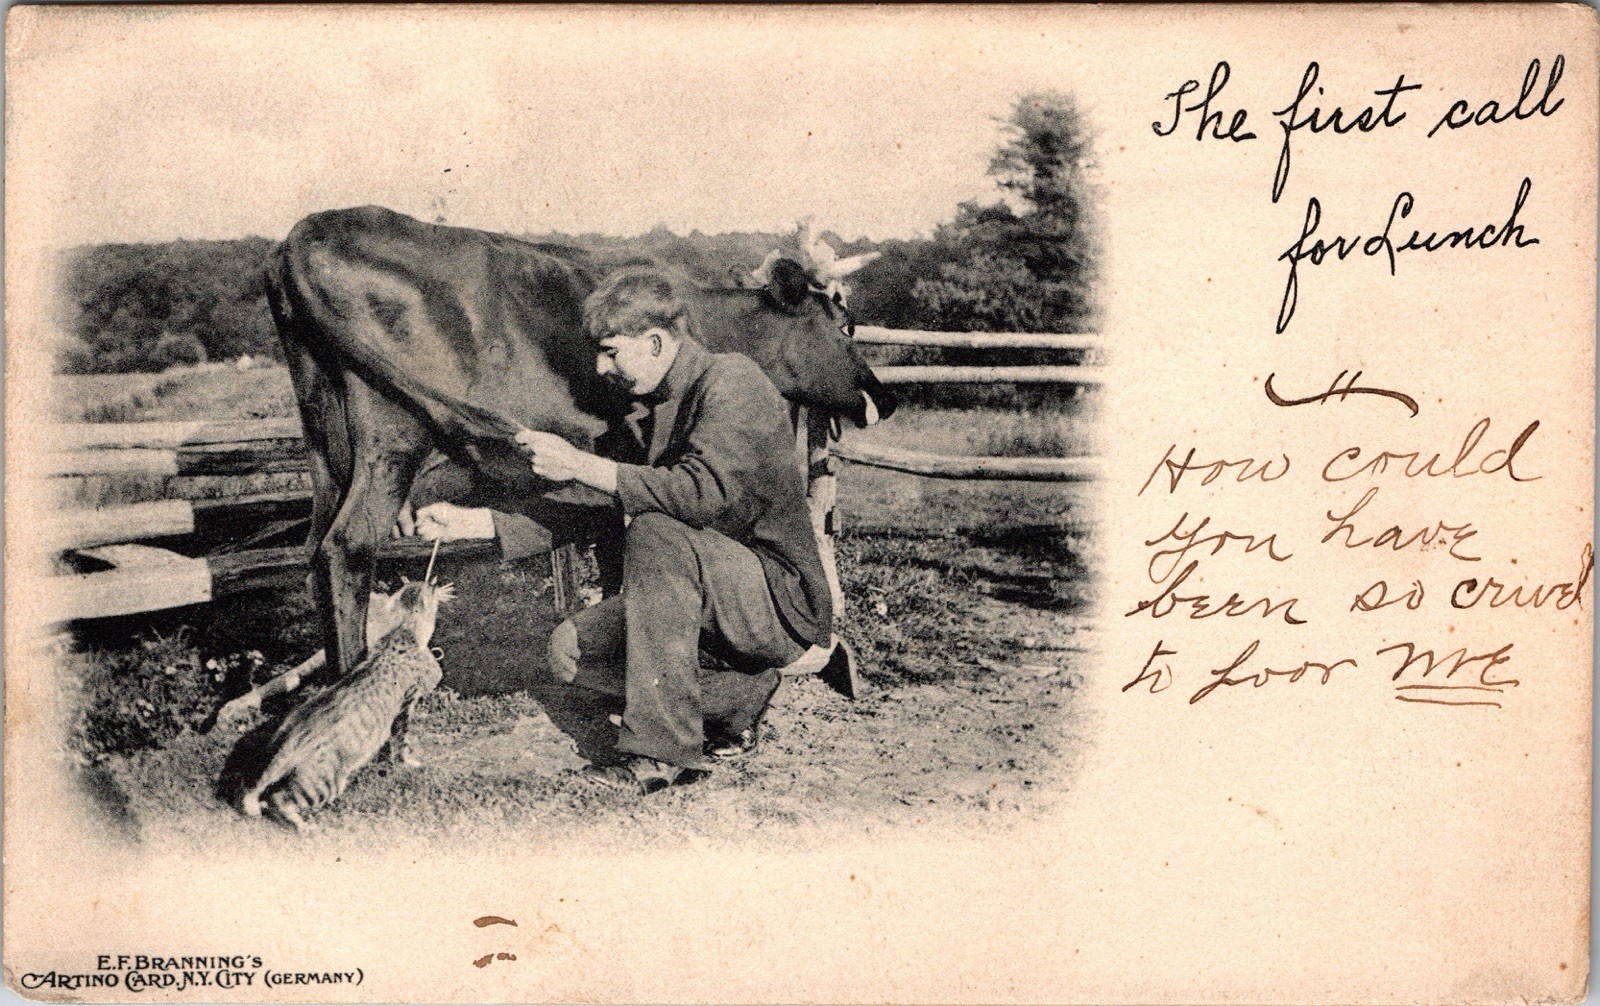 The first call
for Lunch
How could
you have
been so cruel
to poor me
E.F. BRANNING'S
ARTINO CARD. N.Y. CITY (GERMANY)